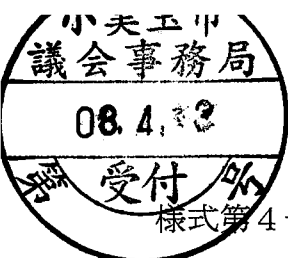 小美玉市
議会事務局
08.4.
第 受付 号
様式第4